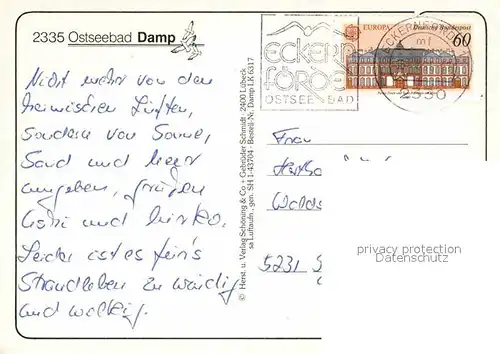 2335 Ostseebad Damp
Nicht mehr von den
heimischen Lüften,
sondern von Sonne,
Sand und Meer
umgeben, grüßen
und
Leider ist es für's
Strandleben zu windig
und wolkig.
© Herst. u. Verlag Schöning & Co + Gebrüder Schmidt · 2400 Lübeck
sa Luftaufn., gen. SH 1-43704 · Bestell-Nr. Damp LK 6317
ECKERN
FÖRDE
OSTSEEBAD
EUROPA
Deutsche Bundespost
60
ECKERNFÖRDE
2330
Frau
5231
privacy protection
Datenschutz